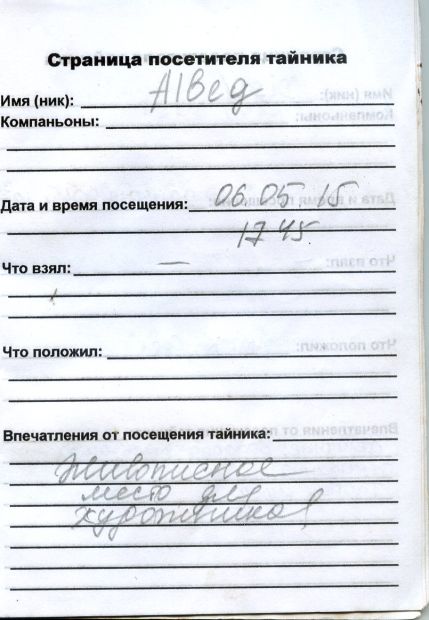 Страница посетителя тайника
Имя (ник): A1Bed
Компаньоны:
Дата и время посещения: 06.05 15
17 45
Что взял: —
Что положил:
Впечатления от посещения тайника:
Живописное
место для
художников